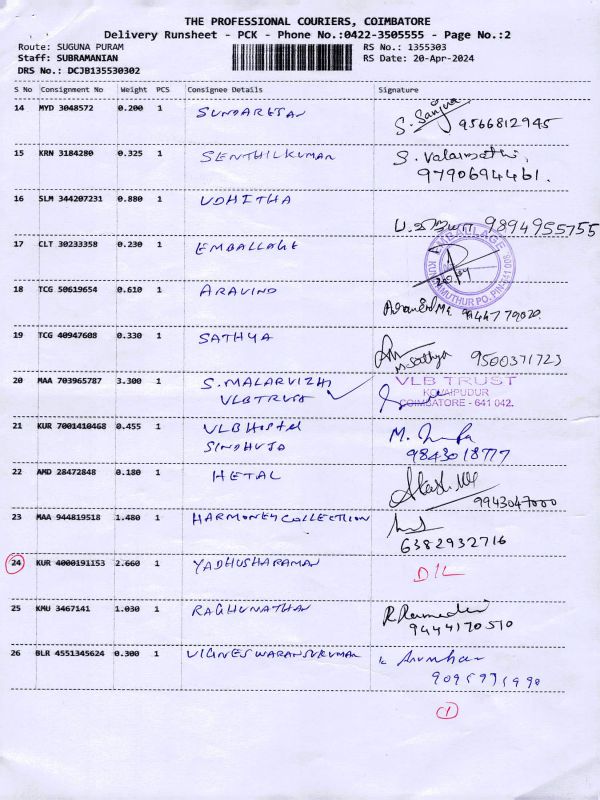 THE PROFESSIONAL COURIERS, COIMBATORE
Delivery Runsheet - PCK - Phone No.:0422-3505555 - Page No.:2
Route: SUGUNA PURAM RS No.: 1355303
Staff: SUBRAMANIAN RS Date: 20-Apr-2024
DRS No.: DCJB135530302
S No Consignment No Weight PCS Consignee Details Signature
14 MYD 3048572 0.200 1 SUNDARESAN S. Sanjna 9566812945
15 KRN 3184280 0.325 1 SENTHILKUMAR S. Valarmathi,
9790694461.
16 SLM 344207231 0.880 1 UDHITHA 9894955755
17 CLT 30233358 0.230 1 EMBALLAGE
EMBALLAGE KUNIAMUTHUR PO. PIN-641 008.
18 TCG 50619654 0.610 1 ARAVIND
19 TCG 40947608 0.330 1 SATHYA M Sathya 9500371723
20 MAA 703965787 3.300 1 S. MALARVIZHI
VLB TRUST
VLB TRUST
KOVAIPUDUR
COIMBATORE - 641 042.
21 KUR 7001410468 0.455 1 VLB Hostel M.
SINDHUJA 9843018777
22 AMD 28472848 0.180 1 HETAL
9943047000
23 MAA 944819518 1.480 1 HARMONEY COLLECTION
6382932716
24 KUR 4000191153 2.660 1 YADHUSHARAMAN D/L
25 KMU 3467141 1.030 1 RAGHUNATHAN
9444170510
26 BLR 4551345624 0.300 1 VIGNESWARANSUKUMAR
1